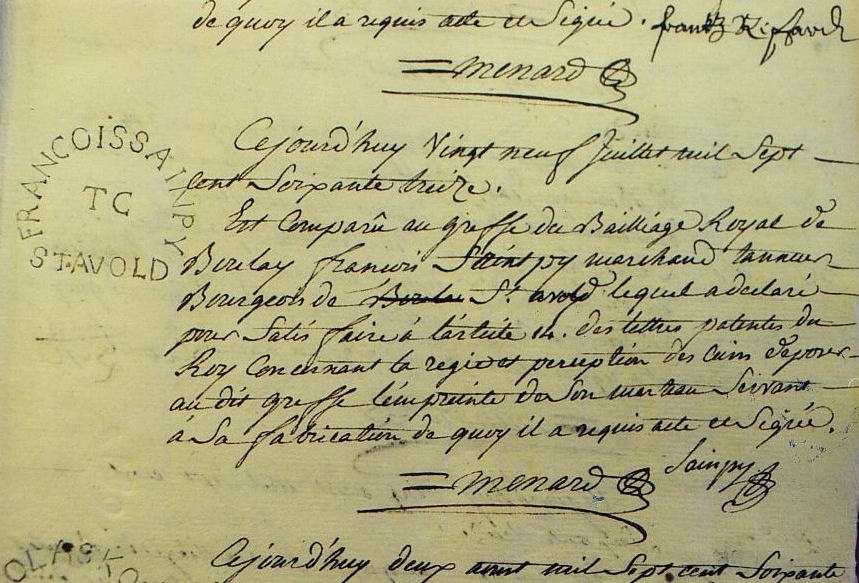 de quoy il a requis acte et Signé. frantz Kiffardt
= Menard
FRANCOIS SAINPY
TC
ST. AVOLD
Cejourd'huy Vingt neuf Juillet mil Sept
cent Soixante treize.
Est Comparû au greffe du Bailliage Royal de
Boulay françois Saintpy marchand tanneur
Bourgeois de Boulay St. avold lequel a declaré
pour Satisfaire à l'article 14. des lettres patentes du
Roy Concernant la regie et perception des Cuirs deposer
au dit greffe l'empreinte de Son marteau Servant
à Sa fabrication de quoy il a requis acte et Signé.
Sainpy
= Menard
Cejourd'huy deux aout mil Sept cent Soixante
OLAS KO